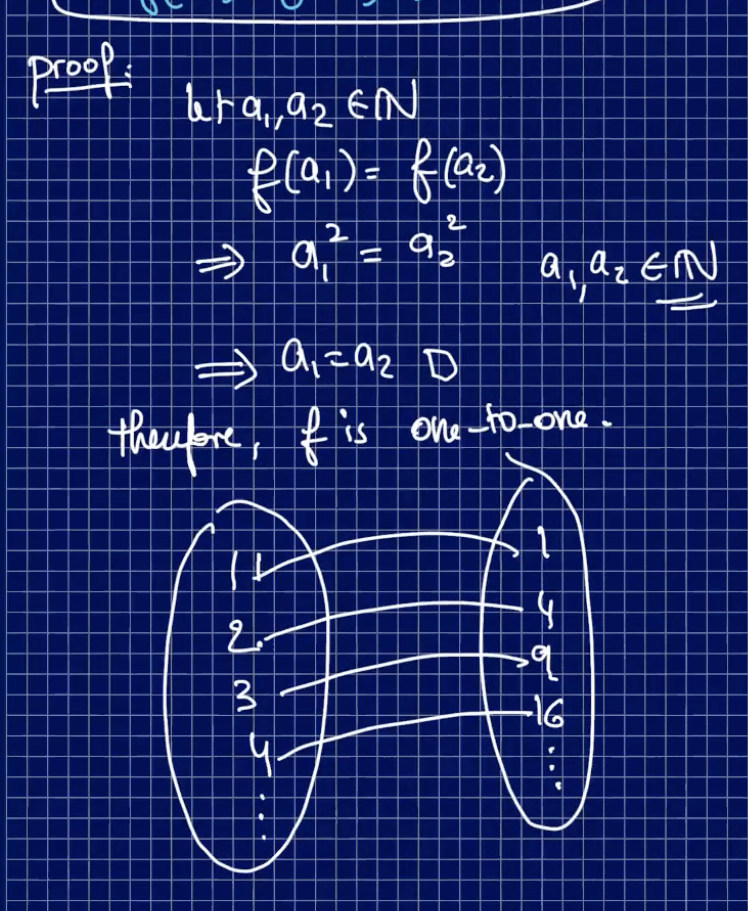 proof:
let a₁, a₂ ∈ ℕ
f(a₁) = f(a₂)
⇒ a₁² = a₂² a₁, a₂ ∈ ℕ
⇒ a₁ = a₂ □
therefore, f is one-to-one.
1 1
2. 4
3 9
4 16
⋮ ⋮